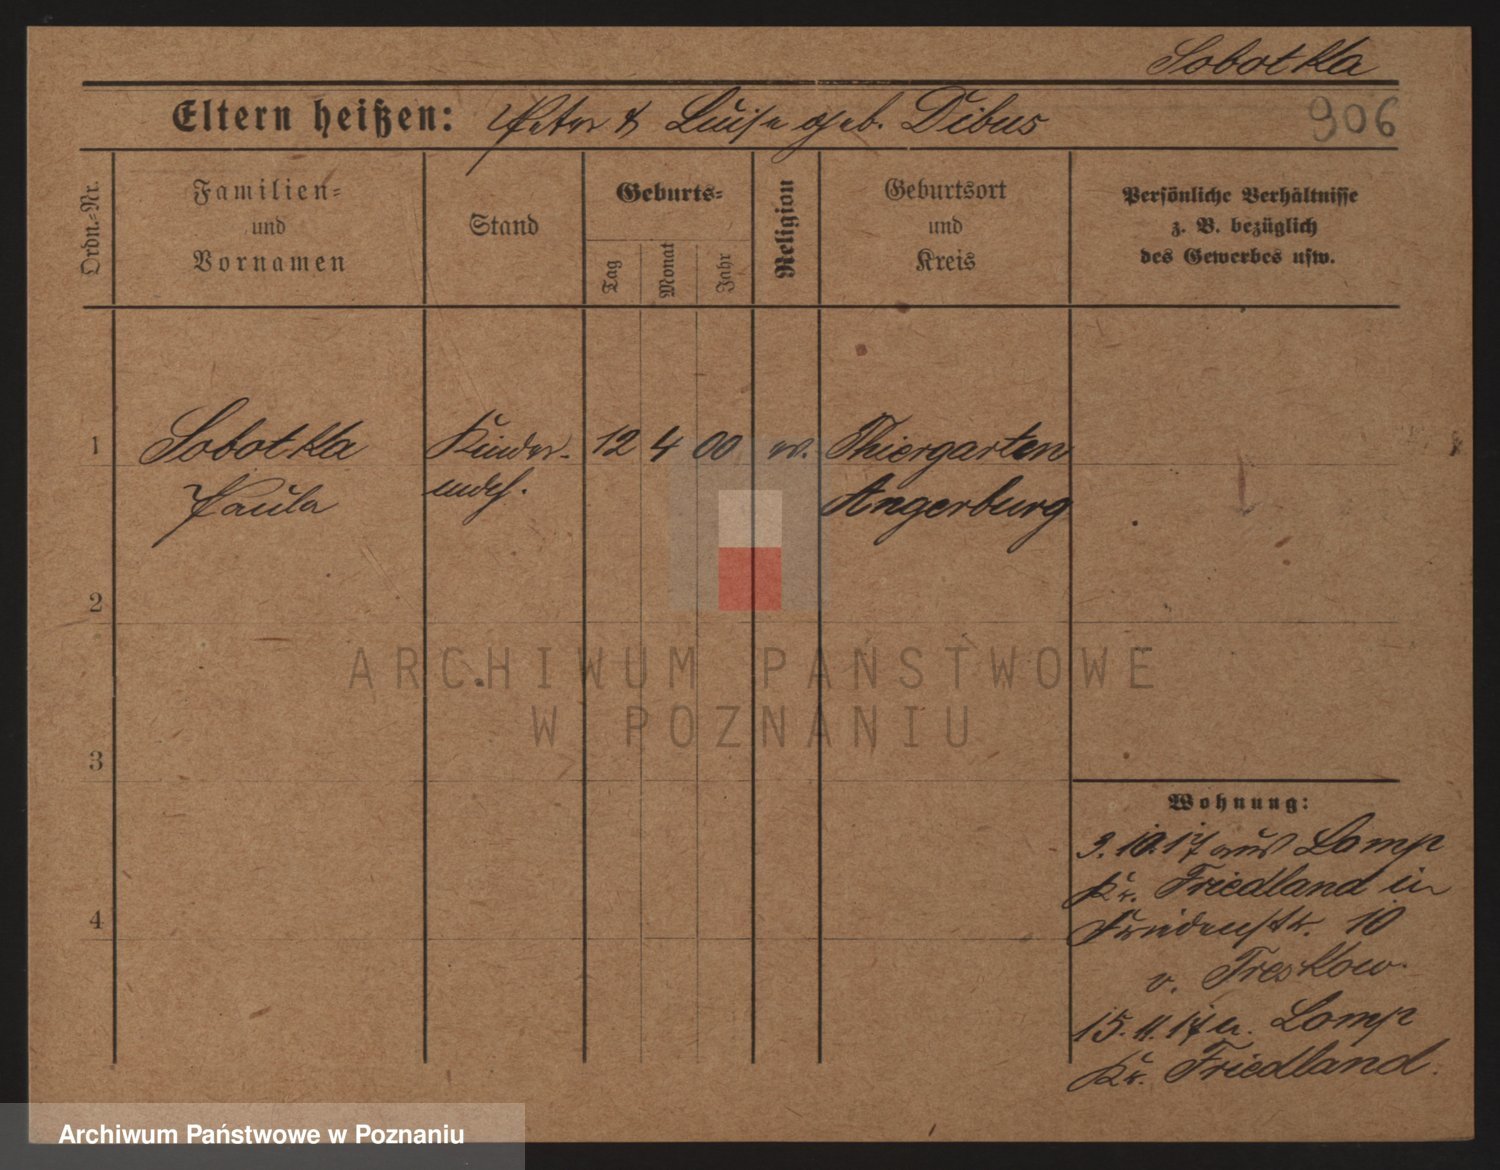 Sobotka
Eltern heißen: Peter & Luise geb. Dibus
906
Ordn.=Nr.
Familien=
und
Vornamen
Stand
Geburts=
Tag
Monat
Jahr
Religion
Geburtsort
und
Kreis
Persönliche Verhältnisse
z. B. bezüglich
des Gewerbes usw.
1
Sobotka
Paula
Kinder-
mdch.
12 4 00
ev.
Thiergarten
Angerburg
2
3
4
Wohnung:
3.10.17 aus Lomp
Kr. Friedland in
Friedenstr. 10
v. Treskow.
15.11.17 n. Lomp
Kr. Friedland.
ARCHIWUM PAŃSTWOWE
W POZNANIU
Archiwum Państwowe w Poznaniu